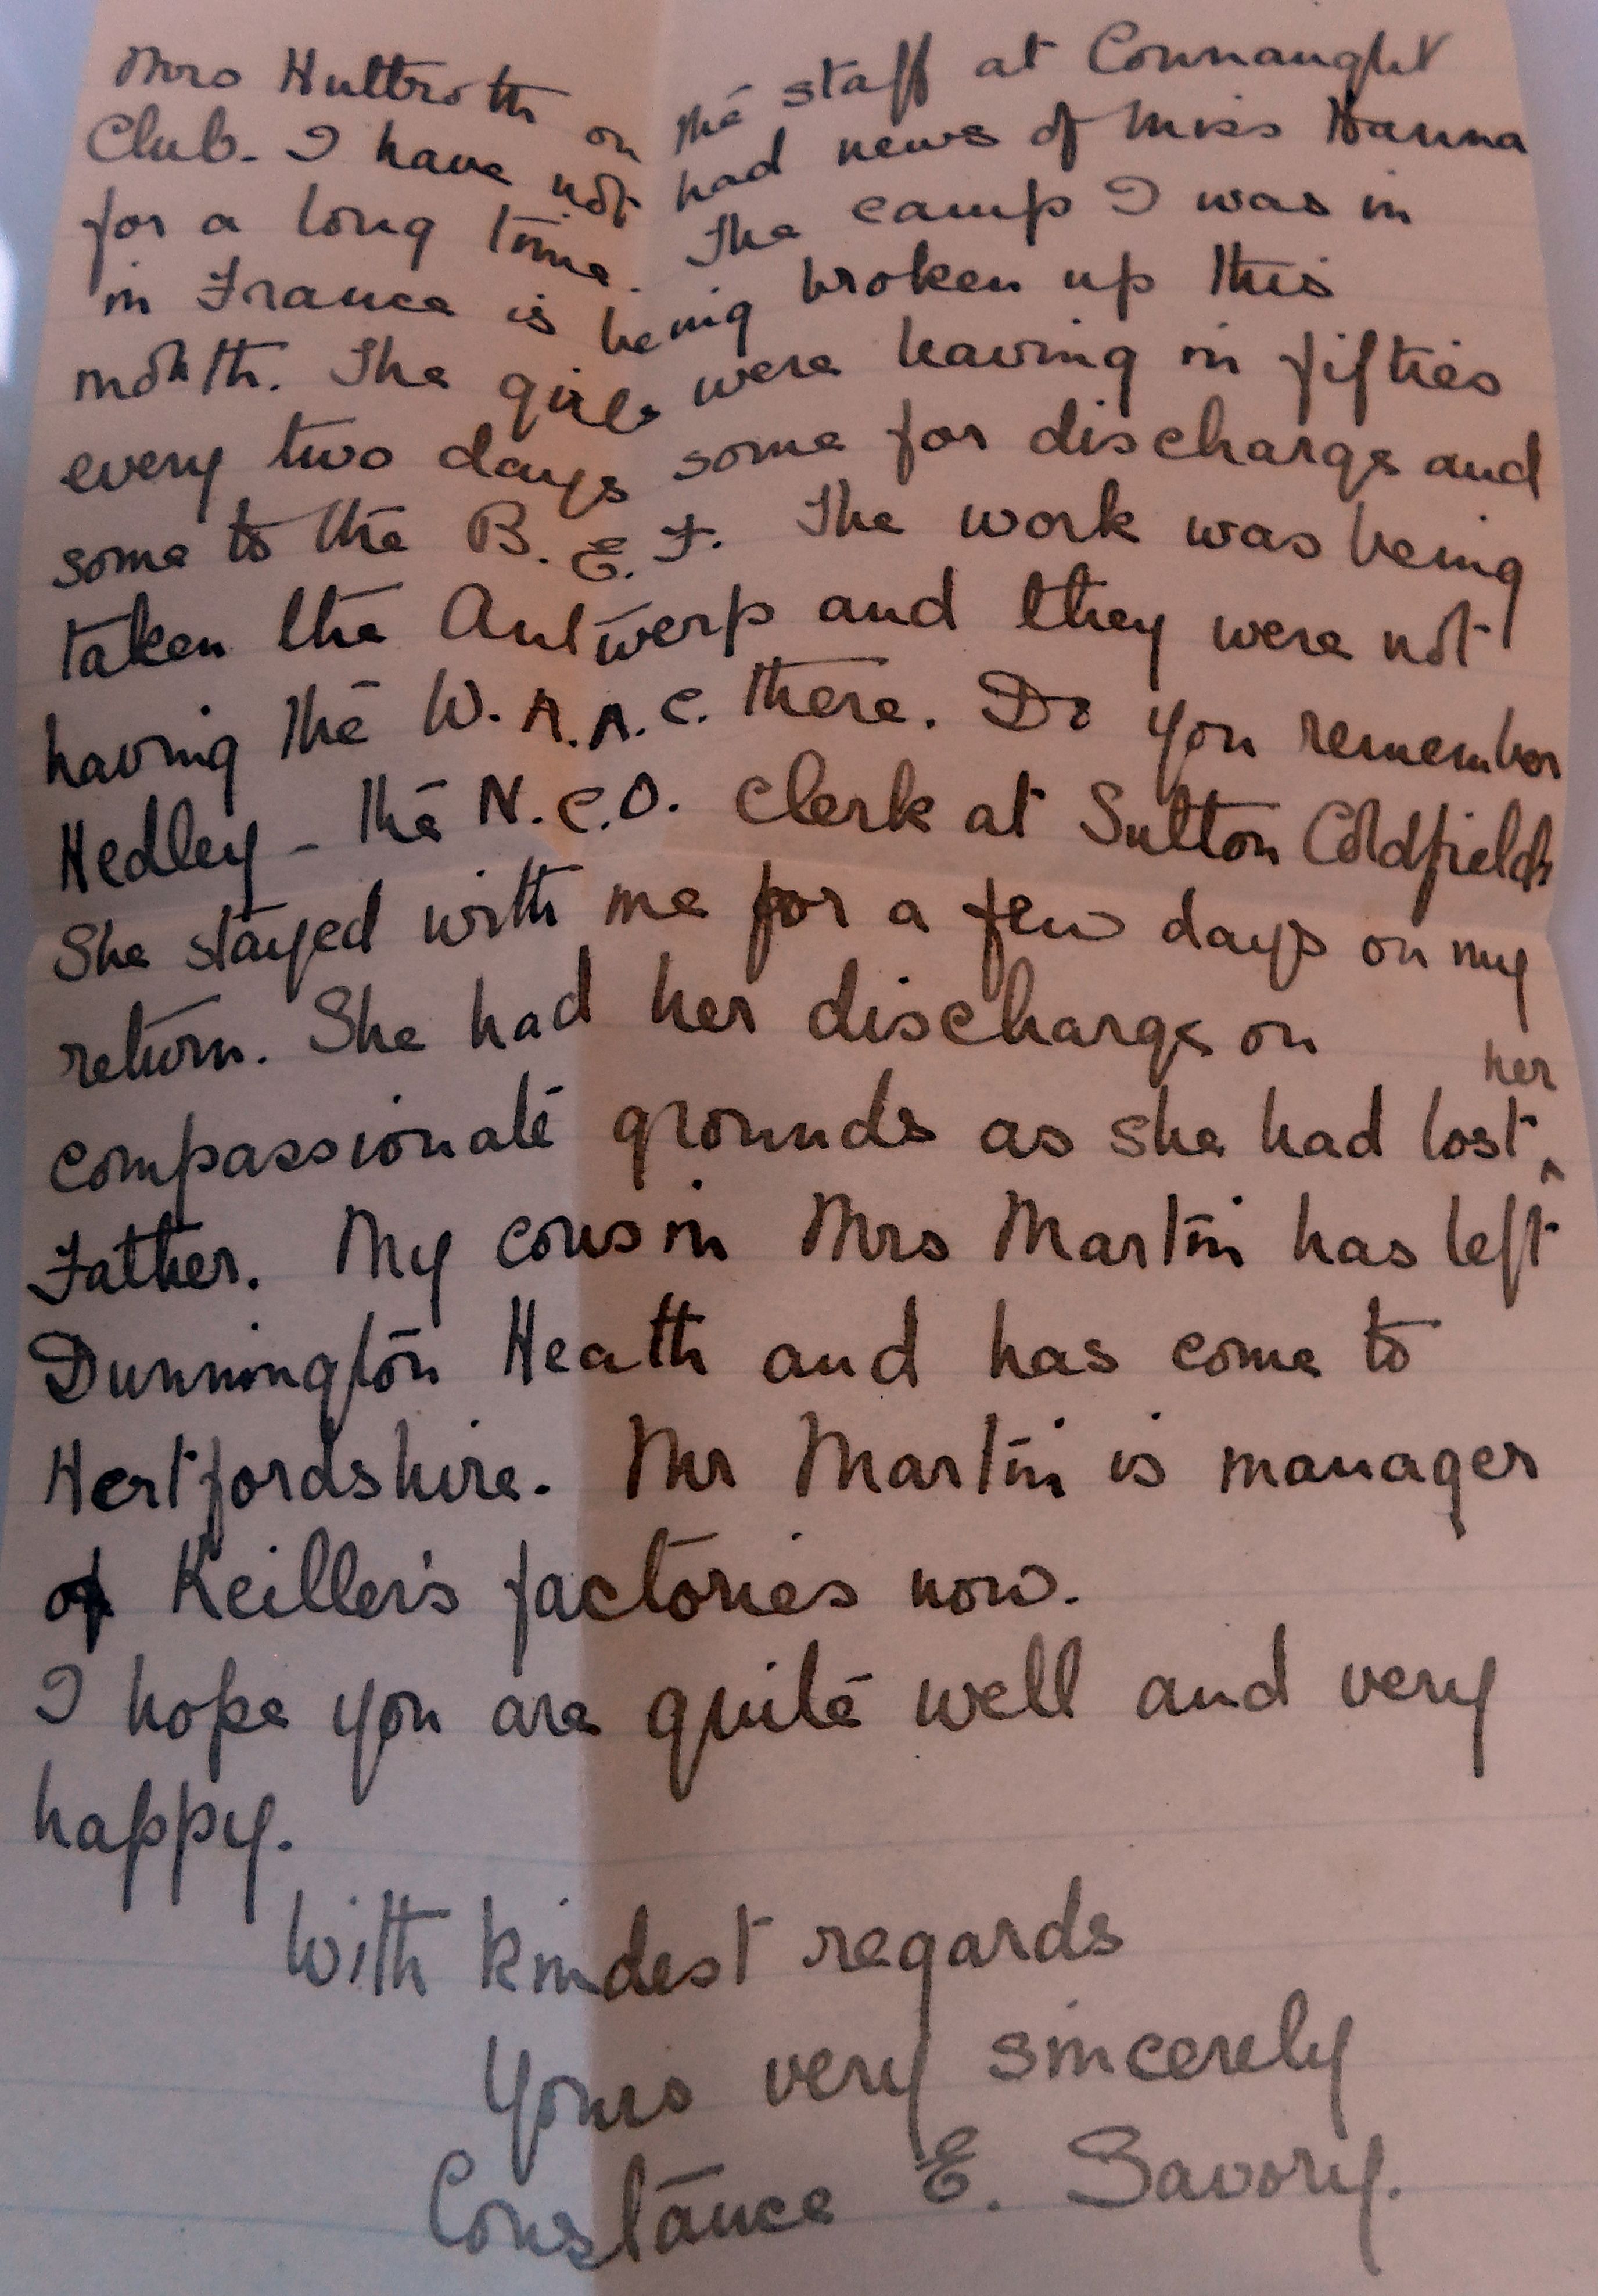 Mrs Huttroth on the staff at Connaught
Club. I have not had news of Miss Hanna
for a long time. The camp I was in
in France is being broken up this
month. The girls were leaving in fifties
every two days some for discharge and
some to the B.E.F. The work was being
taken the Antwerp and they were not
having the W.A.A.C. there. Do you remember
Hedley - the N.C.O. clerk at Sutton Coldfield
She stayed with me for a few days on my
return. She had her discharge on
compassionate grounds as she had lost ^ her
Father. My cousin Mrs Martin has left
Dunnington Heath and has come to
Hertfordshire. Mr Martin is manager
of Keiller's factories now.
I hope you are quite well and very
happy.
With kindest regards
Yours very sincerely
Constance E. Savory.